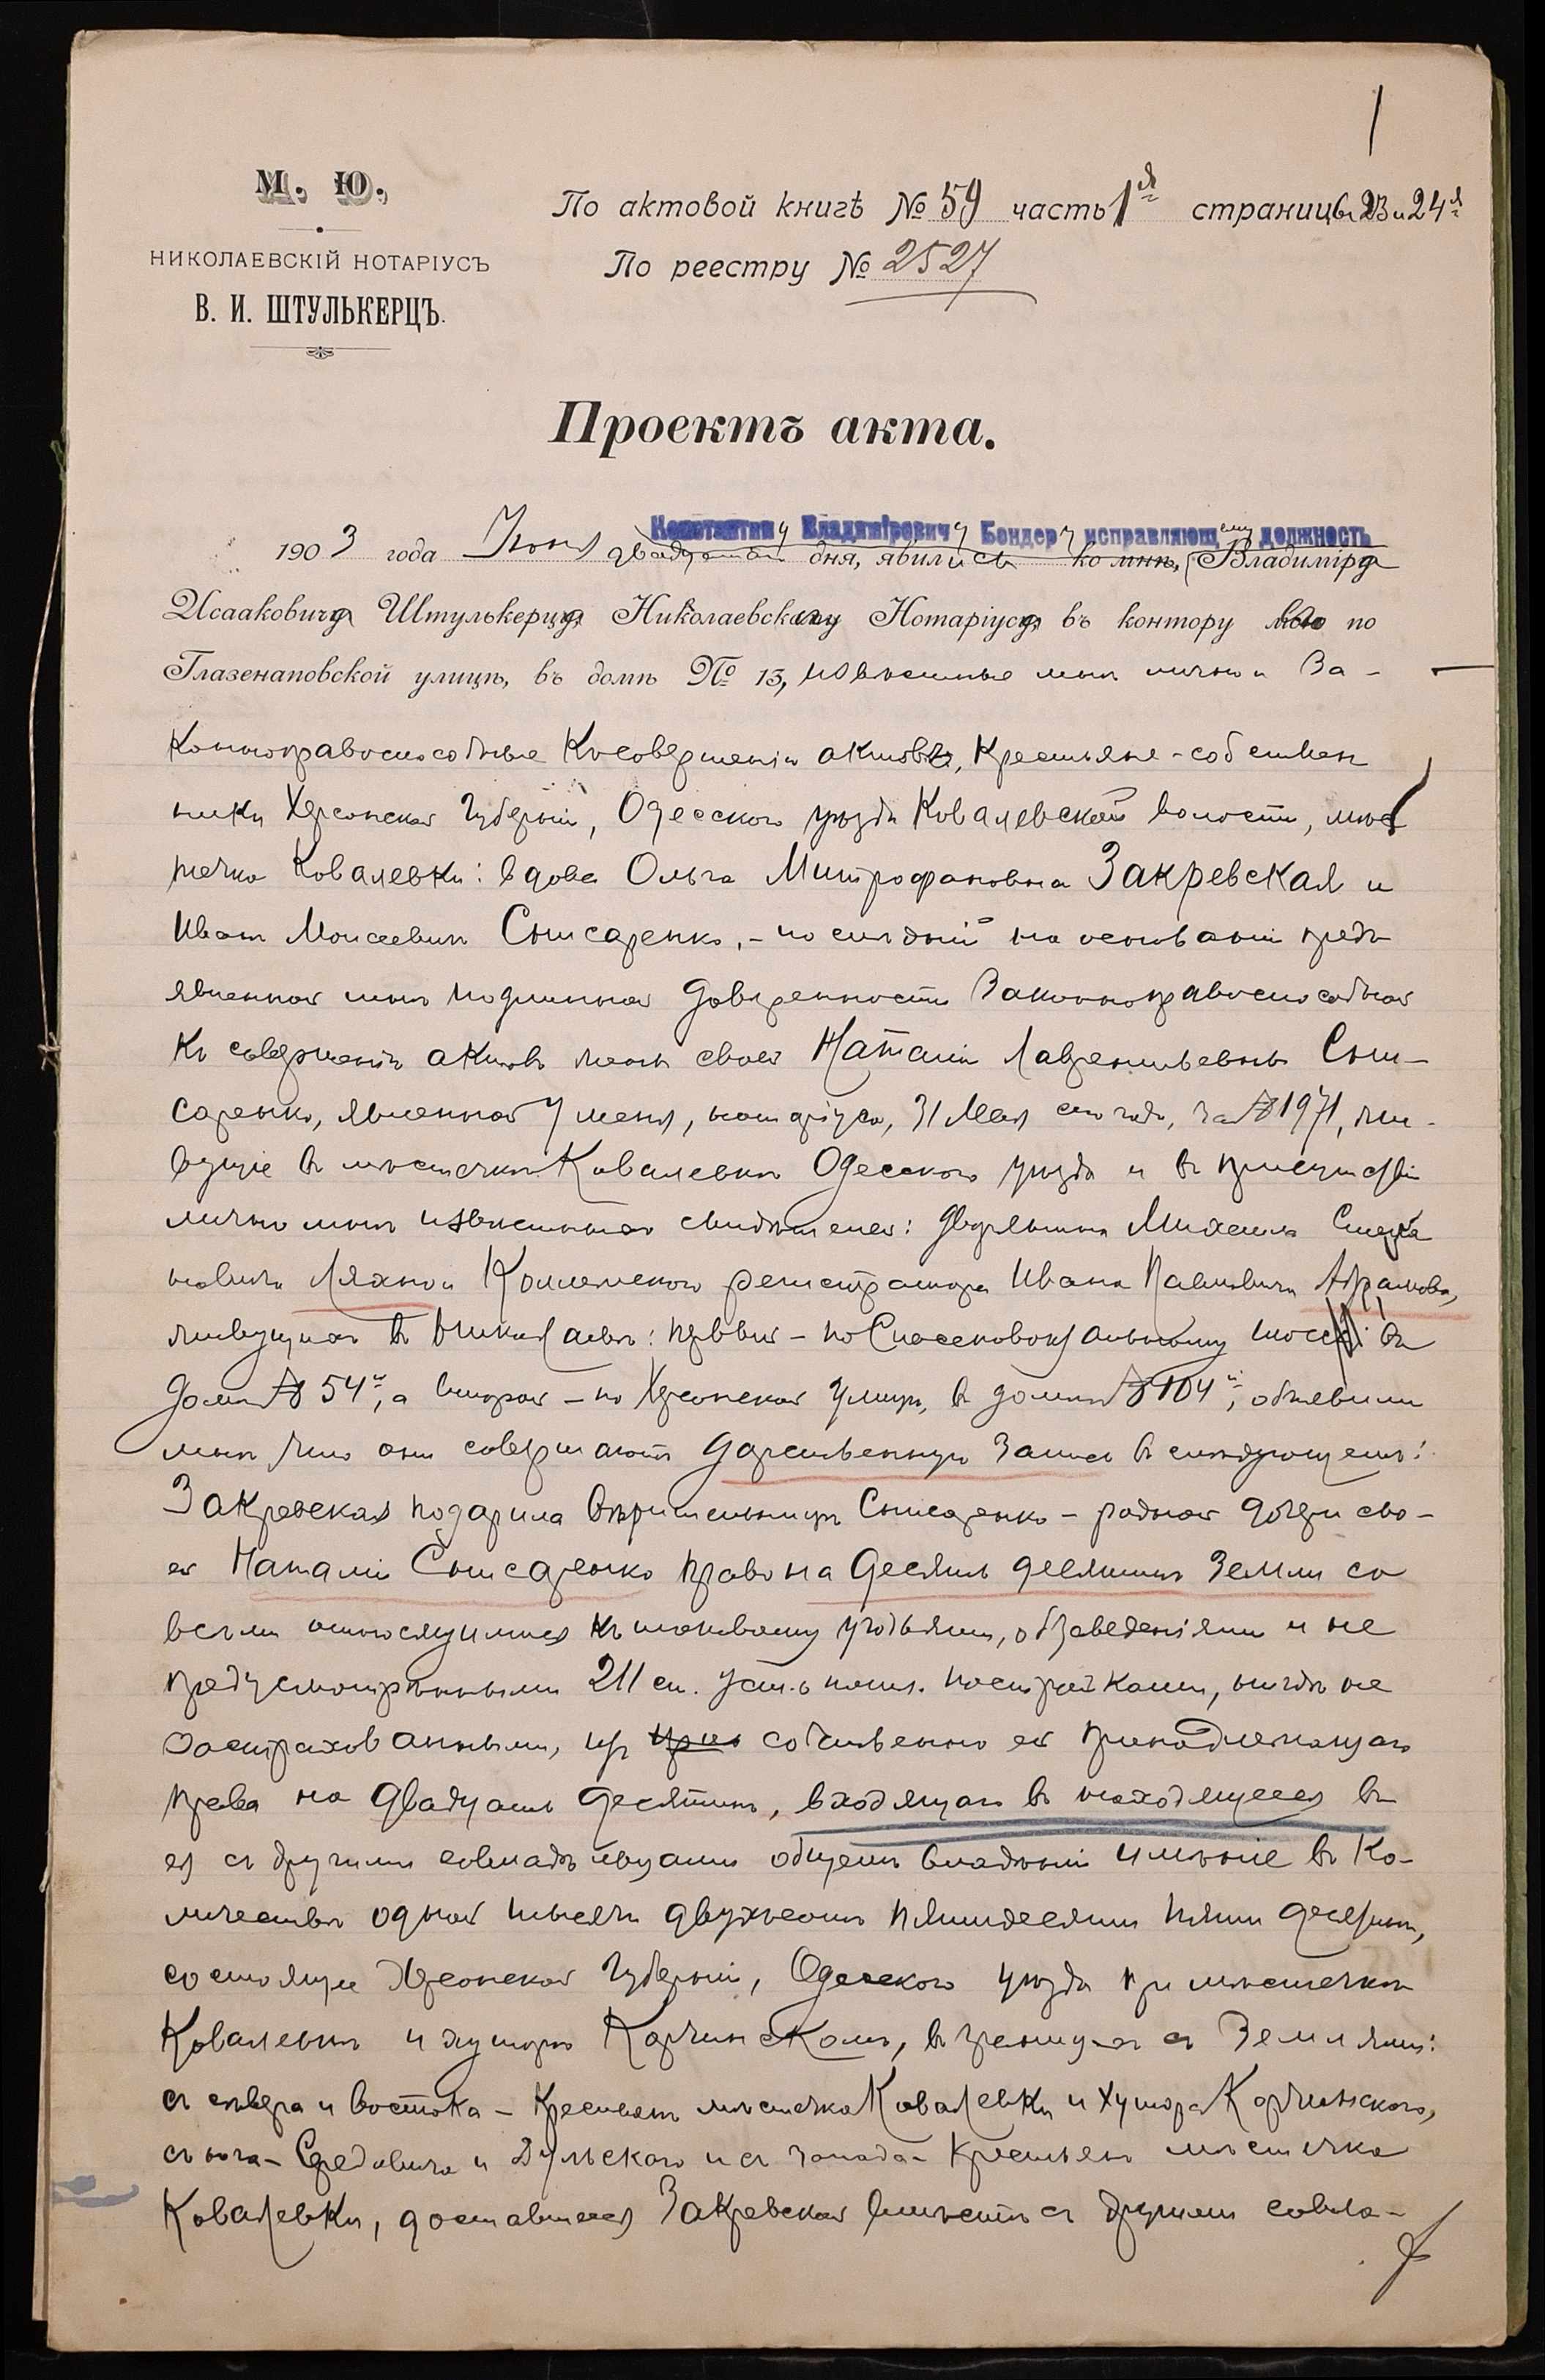 1
М. Ю.
НИКОЛАЕВСКІЙ НОТАРІУСЪ
В. И. ШТУЛЬКЕРЦЪ.
По актовой книгѣ № 59 часть 1я страницы 23 и 24я
По реестру № 2527
Проектъ акта.
Константину Владиміровичу Бондеру исправляющему должность
1903 года Іюня двадцатаго дня, явились ко мнѣ, Владиміра
Исааковича Штулькерца Николаевскому Нотаріуса, въ контору его по
Глазенаповской улицѣ, въ домѣ № 13, извѣстные мнѣ лично и за-
конноправоспособные къ совершенію актовъ, крестьяне-собствен
ники Херсонской Губерніи, Одесскаго уѣзда Ковалевской волости, мѣс
течка Ковалевки: вдова Ольга Митрофановна Закревская и
Иванъ Моисеевичъ Слисаренко, - послѣдній на основаніи предъ
явленной мнѣ подлинной довѣренности законноправоспособной
къ совершенію актовъ жены своей Наталіи Лаврентьевны Сли-
саренко, явленной у меня, нотаріуса, 31 Мая сего года, за № 1971, жи-
вущіе въ мѣстечкѣ Ковалевкѣ Одесскаго уѣзда и въ присутствіи
лично мнѣ извѣстныхъ свидѣтелей: дворянина Михаила Степа
новича Ляхно и Коллежскаго регистратора Ивана Павловича Абрамова,
живущихъ въ Николаевѣ: первый - по шоссе въ
домѣ № 54й, а второй - по Херсонской улицѣ, въ домѣ № 104й, объявили
мнѣ, что они совершаютъ дарственную запись въ слѣдующемъ:
Закревская подарила вѣрительницѣ Слисаренко - родной дочери сво-
ей Наталіи Слисаренко право на десять десятинъ земли со
всѣми относящимися къ таковому угодьями, обзаведеніями и не
предусмотрѣнными 211 ст. уст. о пошл. постройками, нигдѣ не
застрахованными, изъ собственно ей принадлежащаго
права на двадцать десятинъ, входящаго въ находящееся въ
ея съ другими совладѣльцами общемъ владѣніи имѣніе въ ко-
личествѣ одной тысячи двухсотъ пятидесяти пяти десятинъ,
состоящее Херсонской Губерніи, Одесскаго уѣзда при мѣстечкѣ
Ковалевкѣ и хуторѣ Корчинскомъ, въ границахъ съ землями:
съ сѣвера и востока - крестьянъ мѣстечка Ковалевки и хутора Корчинскаго,
съ юга - Средовича и Дульскаго и съ запада - крестьянъ мѣстечка
Ковалевки, доставшееся Закревской вмѣстѣ съ другими совла-